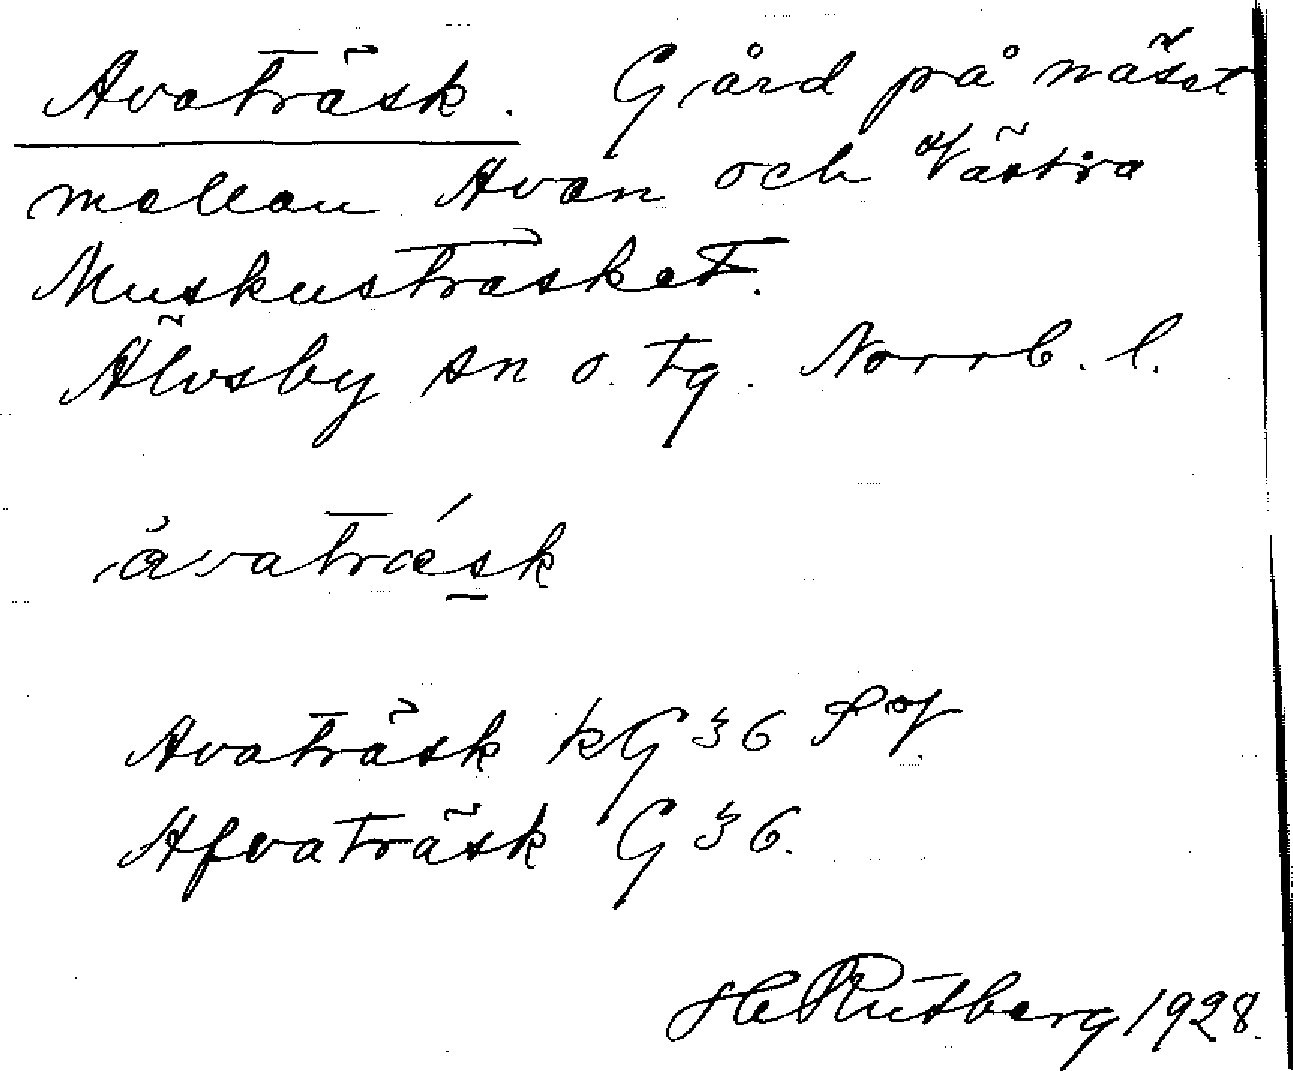 Avaträsk. Gård på näset
mellan Avan och Västra
Muskusträsket.
Älvsby sn o. tg. Norrb. l.
ȧvatrǽsk
Avaträsk kG 36 SV.
Afvaträsk G 36.
H Rutberg 1928.